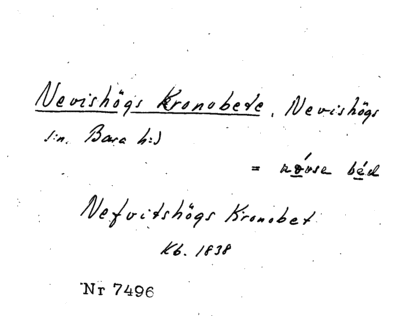 Nevishögs Kronobete, Nevishögs
s:n. Bara h:d
= béd
Nefvitshögs Kronobet
Kb. 1838
Nr 7496